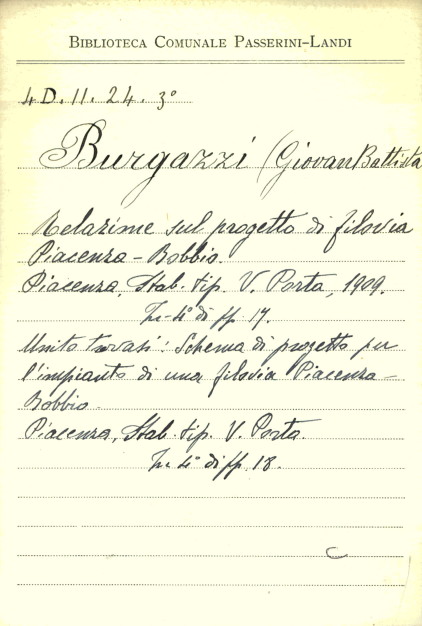 BIBLIOTECA COMUNALE PASSERINI-LANDI
4 D. 11. 24. 3º
Burgazzi (Giovan Battista
Relazione sul progetto di filovia
Piacenza - Bobbio.
Piacenza, Stab. tip. V. Porta, 1909.
In-4º di pp. 17.
Unito trovasi: Schema di progetto per
l'impianto di una filovia Piacenza -
Bobbio.
Piacenza, Stab. tip. V. Porta.
In-4º di pp. 18.
C